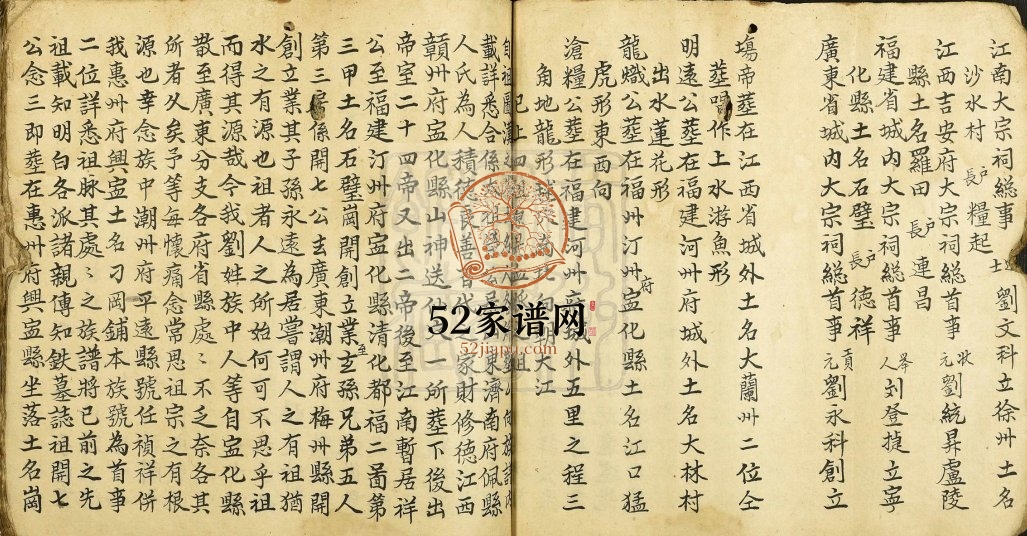 江南大宗祠総事 劉文科立徐州土名
沙水村 長户 糧起
江西吉安府大宗祠総首事 狀元 劉統昇盧陵
縣土名羅田 長户 連昌
福建省城内大宗祠総首事 舉人 刘登捷立寧
化縣土名石璧 長户 德祥
廣東省城内大宗祠総首事 貢元 劉永科創立
塲帝塟在江西省城外土名大蘭州二位仝
塟唱作上水游魚形
明遠公塟在福建河州府城外土名大林村
出水蓮花形
龍熾公塟在福州汀州府宓化縣土名江口猛
虎形東西向
滄糧公塟在福建河州府城外五里之程三
角地龍形 向 大江
已上四
載詳悉合係 東濟南府佩縣
人氏為人積德良善 家財修德江西
贛州府宓化縣山神送 一所塟下後出
帝室二十四帝又出二帝後至江南暫居祥
公至福建汀州府宓化縣清化都福二啚第
三甲土名石璧崗開創立業至玄孫兄弟五人
第三房係開七公去廣東潮州府梅州縣開
創立業其子孫永遠為居嘗謂人之有祖猶
水之有源也祖者人之所始何可不思乎祖
而得其源哉今我劉姓族中人等自宓化縣
散至廣東分支各府省縣處〻不乏奈各其
所者久矣予等每懷痛念常思祖宗之有根
源也幸念族中潮州府平遠縣號任禎祥併
我惠州府興宓土名刁岡鋪本族號為首事
二位詳悉祖脉其處〻之族譜將已前之先
祖載知明白各派諸親傳知鉄墓誌祖開七
公念三即塟在惠州府興宓縣坐落土名崗
52家谱网
52jiapu.com